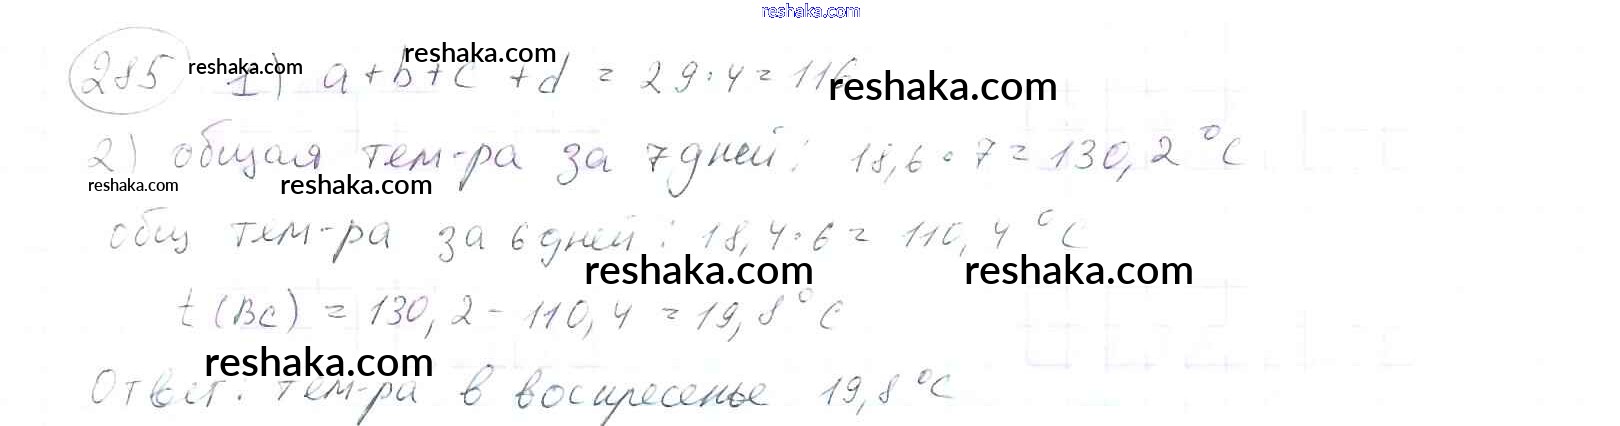 reshaka.com
285 reshaka.com 1) a + b + c + d = 29 · 4 = 116 reshaka.com reshaka.com
2) общая тем-ра за 7 дней: 18,6 · 7 = 130,2 °C
reshaka.com reshaka.com
общ тем-ра за 6 дней: 18,4 · 6 = 110,4 °C
reshaka.com reshaka.com
t (Вс) = 130,2 - 110,4 = 19,8 °C
reshaka.com
Ответ: тем-ра в воскресенье 19,8 °C